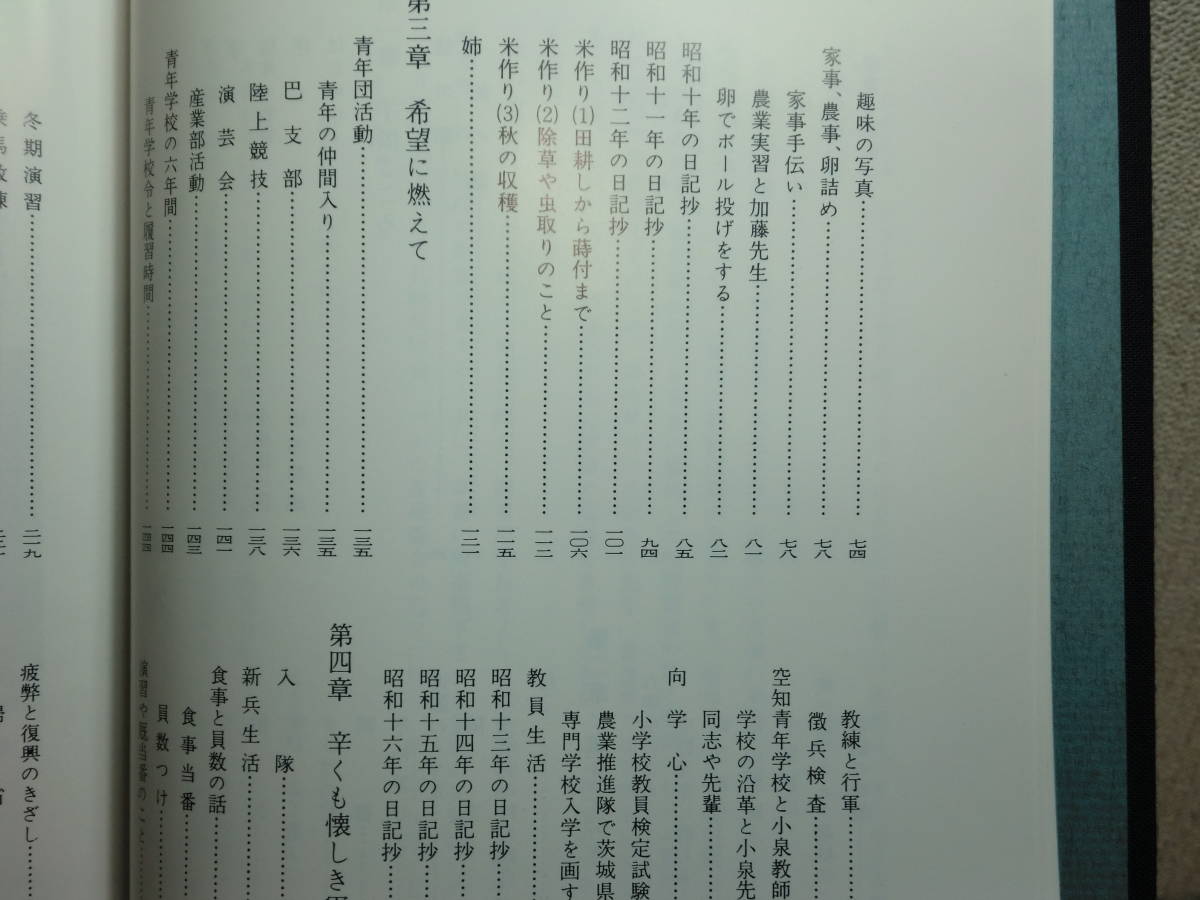 趣味の写真……七四
家事、農事、卵詰め……七八
家事手伝い……七八
農業実習と加藤先生……八一
卵でボール投げをする……八二
昭和十年の日記抄……八五
昭和十一年の日記抄……九四
昭和十二年の日記抄……一〇一
米作り(1)田耕しから蒔付まで……一〇六
米作り(2)除草や虫取りのこと……一一二
米作り(3)秋の収穫……一一五
姉……一二一
第三章 希望に燃えて
青年団活動……一三五
青年の仲間入り……一三五
巴支部……一三六
陸上競技……一三八
演芸会……一四一
産業部活動……一四三
青年学校の六年間……一四四
青年学校令と履習時間……一四四
教練と行軍……
徴兵検査……
空知青年学校と小泉教師
学校の沿革と小泉先
同志や先輩……
向学心……
小学校教員検定試験
農業推進隊で茨城県
専門学校入学を画す
教員生活……
昭和十三年の日記抄……
昭和十四年の日記抄……
昭和十五年の日記抄……
昭和十六年の日記抄……
第四章 辛くも懐しき
入隊……
新兵生活……
食事と員数の話……
食事当番……
員数つけ……
演習や厩当番のこと……
冬期演習……二一九
疲弊と復興のきざし……